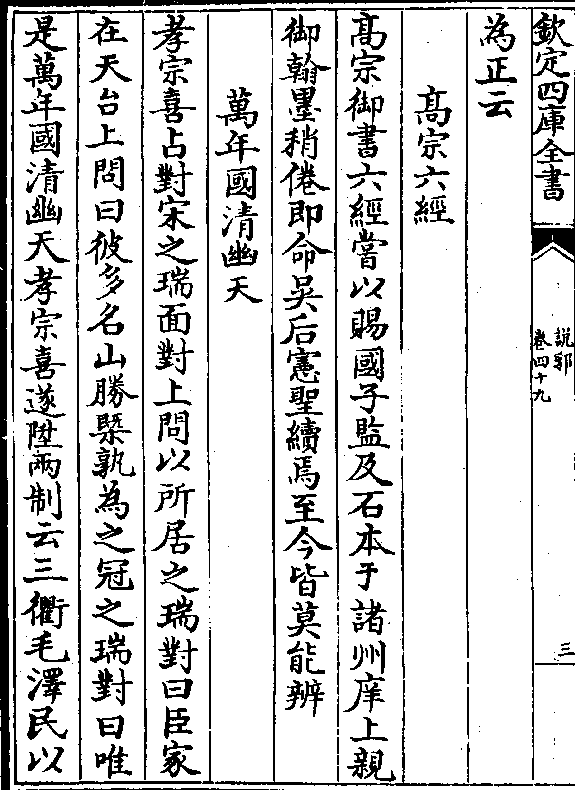 欽定四庫全書
說郛
卷四十九
三
為正云
高宗六經
髙宗御書六經嘗以賜國子監及石本于諸州庠上親
御翰墨稍倦即命吳后憲聖續焉至今皆莫能辨
萬年國清幽天
孝宗喜占對宋之瑞面對上問以所居之瑞對曰臣家
在天台上問曰彼多名山勝槩孰為之冠之瑞對曰唯
是萬年國清幽天孝宗喜遂陞兩制云三衢毛澤民以